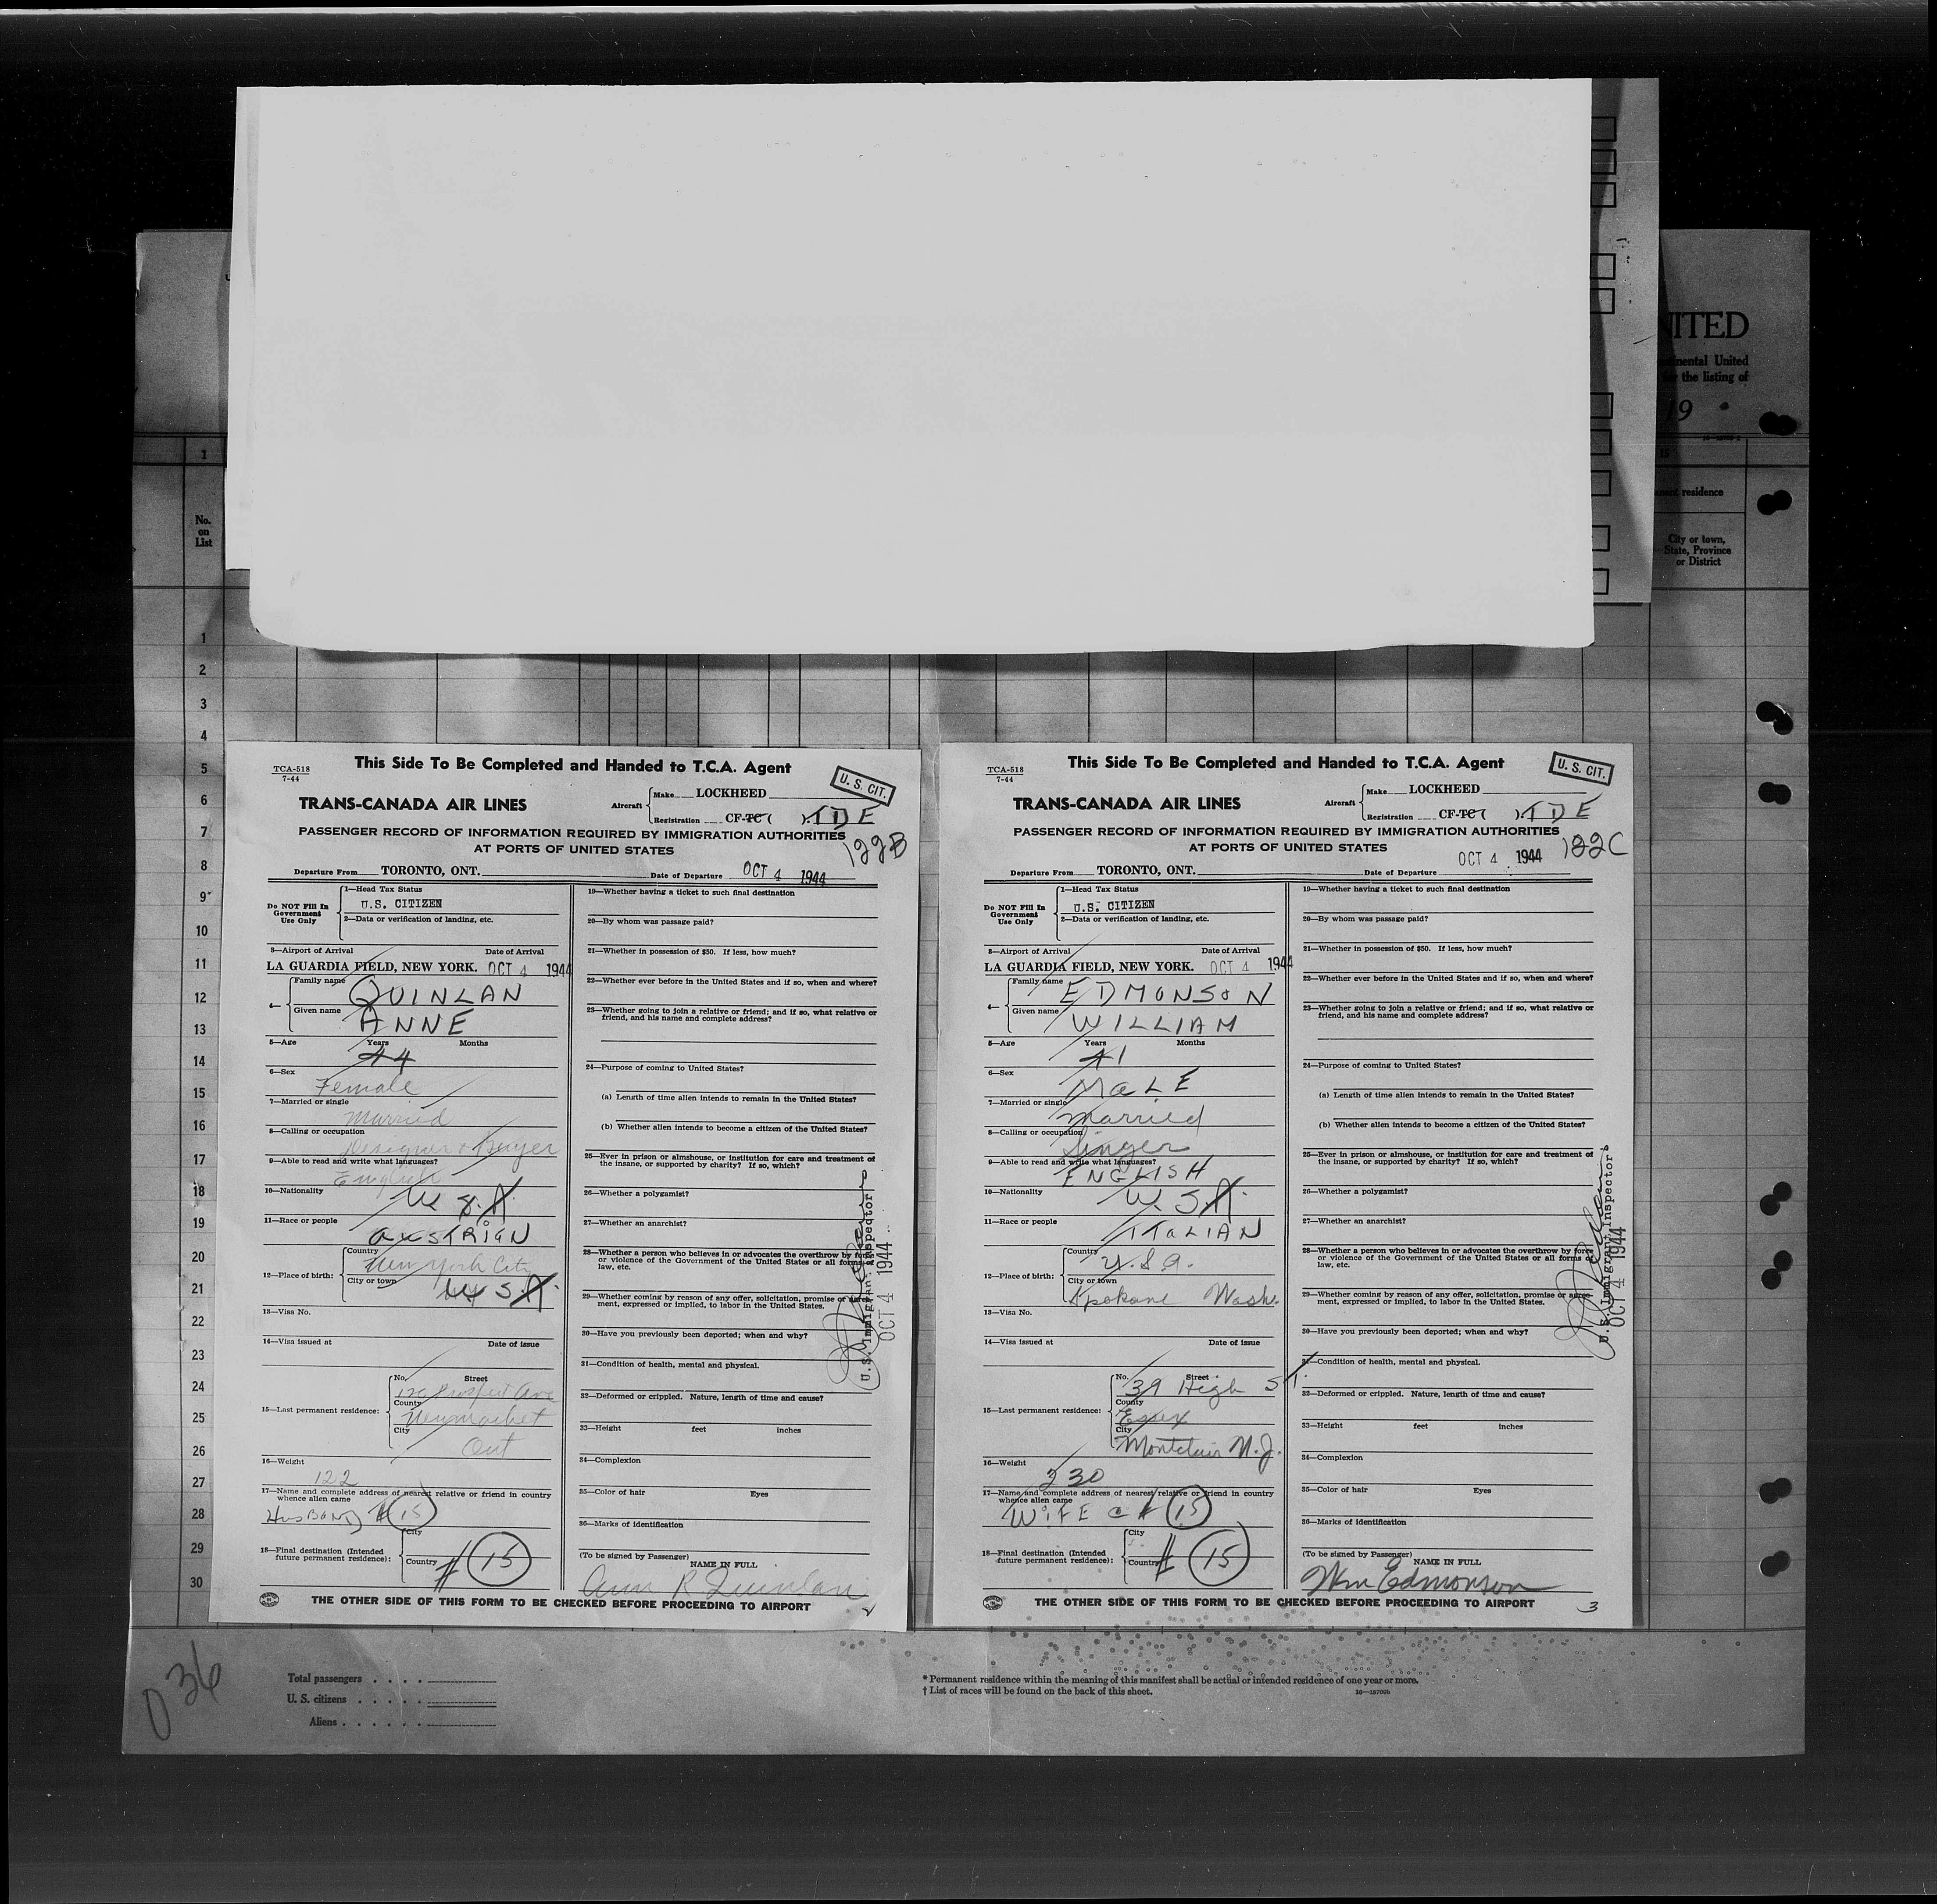 NITED
inental United
for the listing of
19
15
residence
City or town,
State, Province
or District
1
No.
on
List
1
2
3
4
5
6
7
8
9
10
11
12
13
14
15
16
17
18
19
20
21
22
23
24
25
26
27
28
29
30
This Side To Be Completed and Handed to T.C.A. Agent
TCA-518
7-44
U. S. CIT.
TRANS-CANADA AIR LINES
Aircraft
Make LOCKHEED
Registration CF-TC ( ). TDE
PASSENGER RECORD OF INFORMATION REQUIRED BY IMMIGRATION AUTHORITIES
AT PORTS OF UNITED STATES
122B
Departure From TORONTO, ONT. Date of Departure OCT 4 1944
Do NOT Fill In
Government
Use Only
1—Head Tax Status
U.S. CITIZEN
2—Data or verification of landing, etc.
3—Airport of Arrival Date of Arrival
LA GUARDIA FIELD, NEW YORK. OCT 4 1944
4— Family name QUINLAN
Given name ANNE
5—Age Years Months
44
6—Sex
Female
7—Married or single
Married
8—Calling or occupation
Designer & Buyer
9—Able to read and write what languages?
English
10—Nationality
U.S.A.
11—Race or people
AUSTRIAN
12—Place of birth:
Country
New York City
City or town
U.S.A.
13—Visa No.
14—Visa issued at Date of issue
15—Last permanent residence:
No. Street
Prospect Ave
County
Newmarket
City
Ont
16—Weight
122
17—Name and complete address of nearest relative or friend in country
whence alien came
HUSBAND # 15
18—Final destination (Intended
future permanent residence):
City
Country
# 15
19—Whether having a ticket to such final destination
20—By whom was passage paid?
21—Whether in possession of $50. If less, how much?
22—Whether ever before in the United States and if so, when and where?
23—Whether going to join a relative or friend; and if so, what relative or
friend, and his name and complete address?
24—Purpose of coming to United States?
(a) Length of time alien intends to remain in the United States?
(b) Whether alien intends to become a citizen of the United States?
25—Ever in prison or almshouse, or institution for care and treatment of
the insane, or supported by charity? If so, which?
26—Whether a polygamist?
27—Whether an anarchist?
28—Whether a person who believes in or advocates the overthrow by force
or violence of the Government of the United States or all forms of
law, etc.
29—Whether coming by reason of any offer, solicitation, promise or agree-
ment, expressed or implied, to labor in the United States.
30—Have you previously been deported; when and why?
31—Condition of health, mental and physical.
32—Deformed or crippled. Nature, length of time and cause?
33—Height feet inches
34—Complexion
35—Color of hair Eyes
36—Marks of identification
(To be signed by Passenger)
NAME IN FULL
Ann R Quinlan
U.S. Immigrant Inspector
OCT 4 1944
THE OTHER SIDE OF THIS FORM TO BE CHECKED BEFORE PROCEEDING TO AIRPORT
2
This Side To Be Completed and Handed to T.C.A. Agent
TCA-518
7-44
U. S. CIT.
TRANS-CANADA AIR LINES
Aircraft
Make LOCKHEED
Registration CF-TC ( ). TDE
PASSENGER RECORD OF INFORMATION REQUIRED BY IMMIGRATION AUTHORITIES
AT PORTS OF UNITED STATES
122C
OCT 4 1944
Departure From TORONTO, ONT. Date of Departure
Do NOT Fill In
Government
Use Only
1—Head Tax Status
U.S. CITIZEN
2—Data or verification of landing, etc.
3—Airport of Arrival Date of Arrival
LA GUARDIA FIELD, NEW YORK. OCT 4 1944
4— Family name EDMONSON
Given name WILLIAM
5—Age Years Months
41
6—Sex
MALE
7—Married or single
Married
8—Calling or occupation
Singer
9—Able to read and write what languages?
ENGLISH
10—Nationality
U.S.A.
11—Race or people
ITALIAN
12—Place of birth:
Country
U.S.A.
City or town
Spokane Wash.
13—Visa No.
14—Visa issued at Date of issue
15—Last permanent residence:
No. Street
39 High ST.
County
Essex
City
Montclair N.J.
16—Weight
230
17—Name and complete address of nearest relative or friend in country
whence alien came
WIFE @ # 15
18—Final destination (Intended
future permanent residence):
City
Country
# 15
19—Whether having a ticket to such final destination
20—By whom was passage paid?
21—Whether in possession of $50. If less, how much?
22—Whether ever before in the United States and if so, when and where?
23—Whether going to join a relative or friend; and if so, what relative or
friend, and his name and complete address?
24—Purpose of coming to United States?
(a) Length of time alien intends to remain in the United States?
(b) Whether alien intends to become a citizen of the United States?
25—Ever in prison or almshouse, or institution for care and treatment of
the insane, or supported by charity? If so, which?
26—Whether a polygamist?
27—Whether an anarchist?
28—Whether a person who believes in or advocates the overthrow by force
or violence of the Government of the United States or all forms of
law, etc.
29—Whether coming by reason of any offer, solicitation, promise or agree-
ment, expressed or implied, to labor in the United States.
30—Have you previously been deported; when and why?
31—Condition of health, mental and physical.
32—Deformed or crippled. Nature, length of time and cause?
33—Height feet inches
34—Complexion
35—Color of hair Eyes
36—Marks of identification
(To be signed by Passenger)
NAME IN FULL
Wm Edmonson
U.S. Immigrant Inspector
OCT 4 1944
THE OTHER SIDE OF THIS FORM TO BE CHECKED BEFORE PROCEEDING TO AIRPORT
3
036
Total passengers . . . .
U. S. citizens . . . . .
Aliens . . . . . .
* Permanent residence within the meaning of this manifest shall be actual or intended residence of one year or more.
† List of races will be found on the back of this sheet.